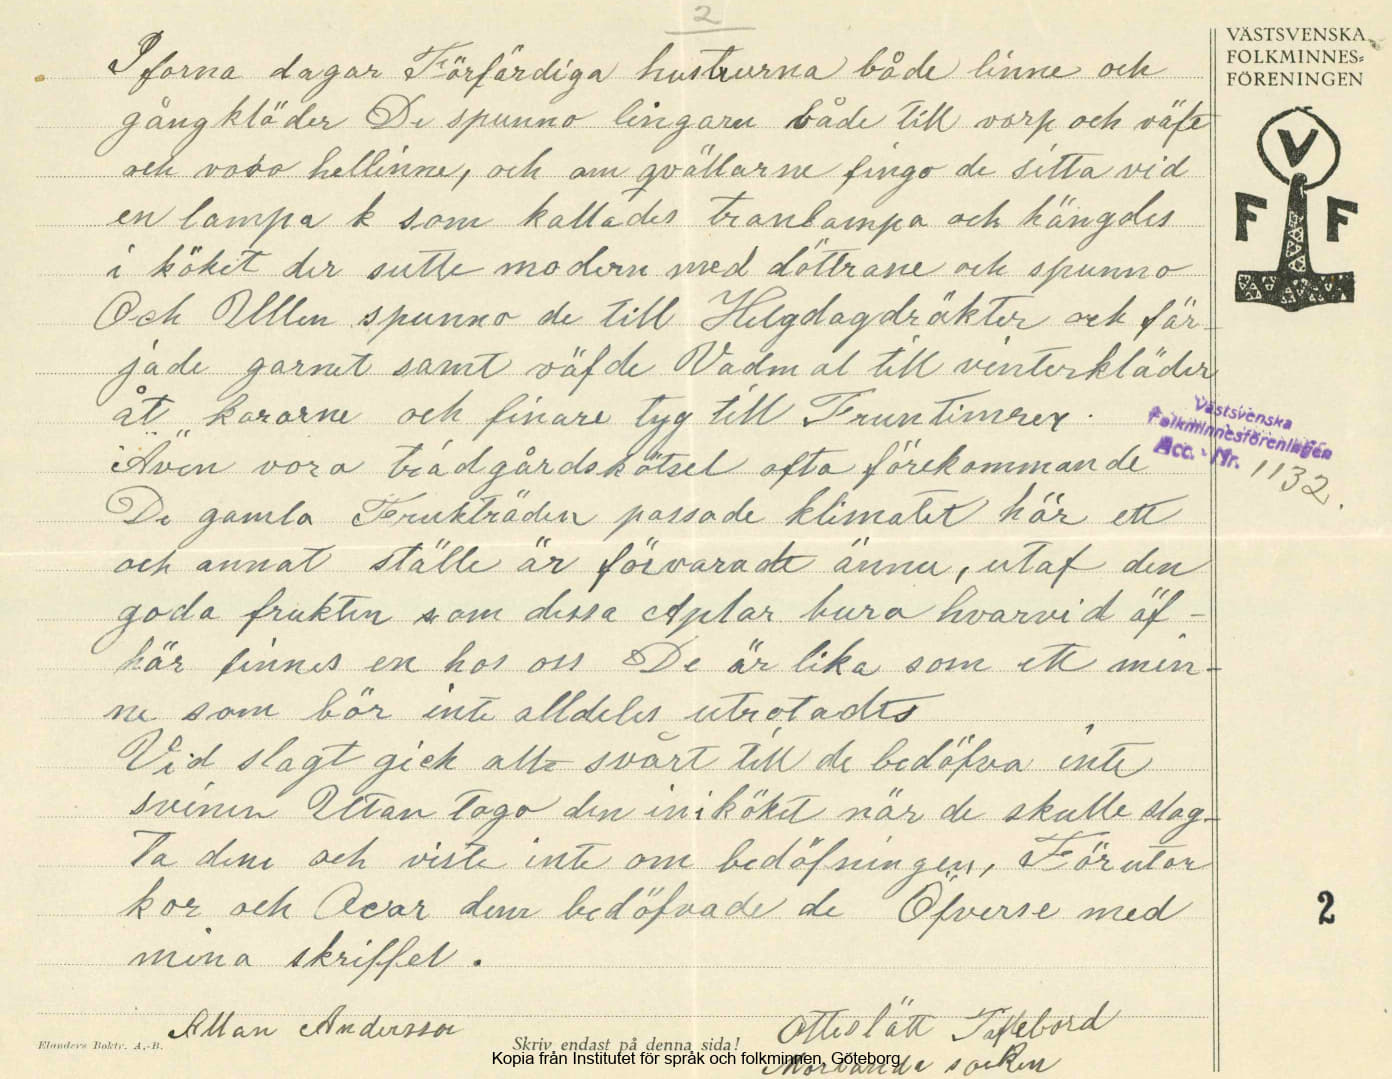 2
VÄSTSVENSKA
FOLKMINNES-
FÖRENINGEN
V
F F
I forna dagar Förfärdiga hustrurna både linne och
gångkläder De spunno lingarn både till varp och väft
och voro hellinne, och om qvällarne fingo de sitta vid
en lampa k som kallades tranlampa och hängdes
i köket der sutte modern med döttrane och spunno
Och Ullen spunno de till Helgdagdräkter och fär-
jade garnet samt väfde Vadmal till vinterkläder
åt kararne och finare tyg till Fruntimrer.
Även vora trädgårdskötsel ofta förekommande
De gamla Frukträden passade klimatet här ett
och annat ställe är förvaradt ännu, utaf den
goda frukten som dessa Aplar bura hvarvid äf-
här finnes en hos oss De är lika som ett min-
ne som bör inte alldeles utrotades
Vid slagt gick allt svårt till de bedöfva inte
svinen Utan togo den in i köket när de skulle slag-
ta dem och viste inte om bedöfningen, Förutom
kor och Oxar dem bedöfvade de Öfverse med
mina skriffel.
Allan Andersson
Otteslätt Taflebord
Morlanda socken
Västsvenska
Folkminnesföreningen
Acc. - Nr. 1132.
2
Elanders Boktr. A.-B.
Skriv endast på denna sida!
Kopia från Institutet för språk och folkminnen, Göteborg